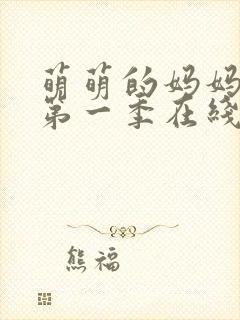 萌萌的妈妈
第一季在线
熊福